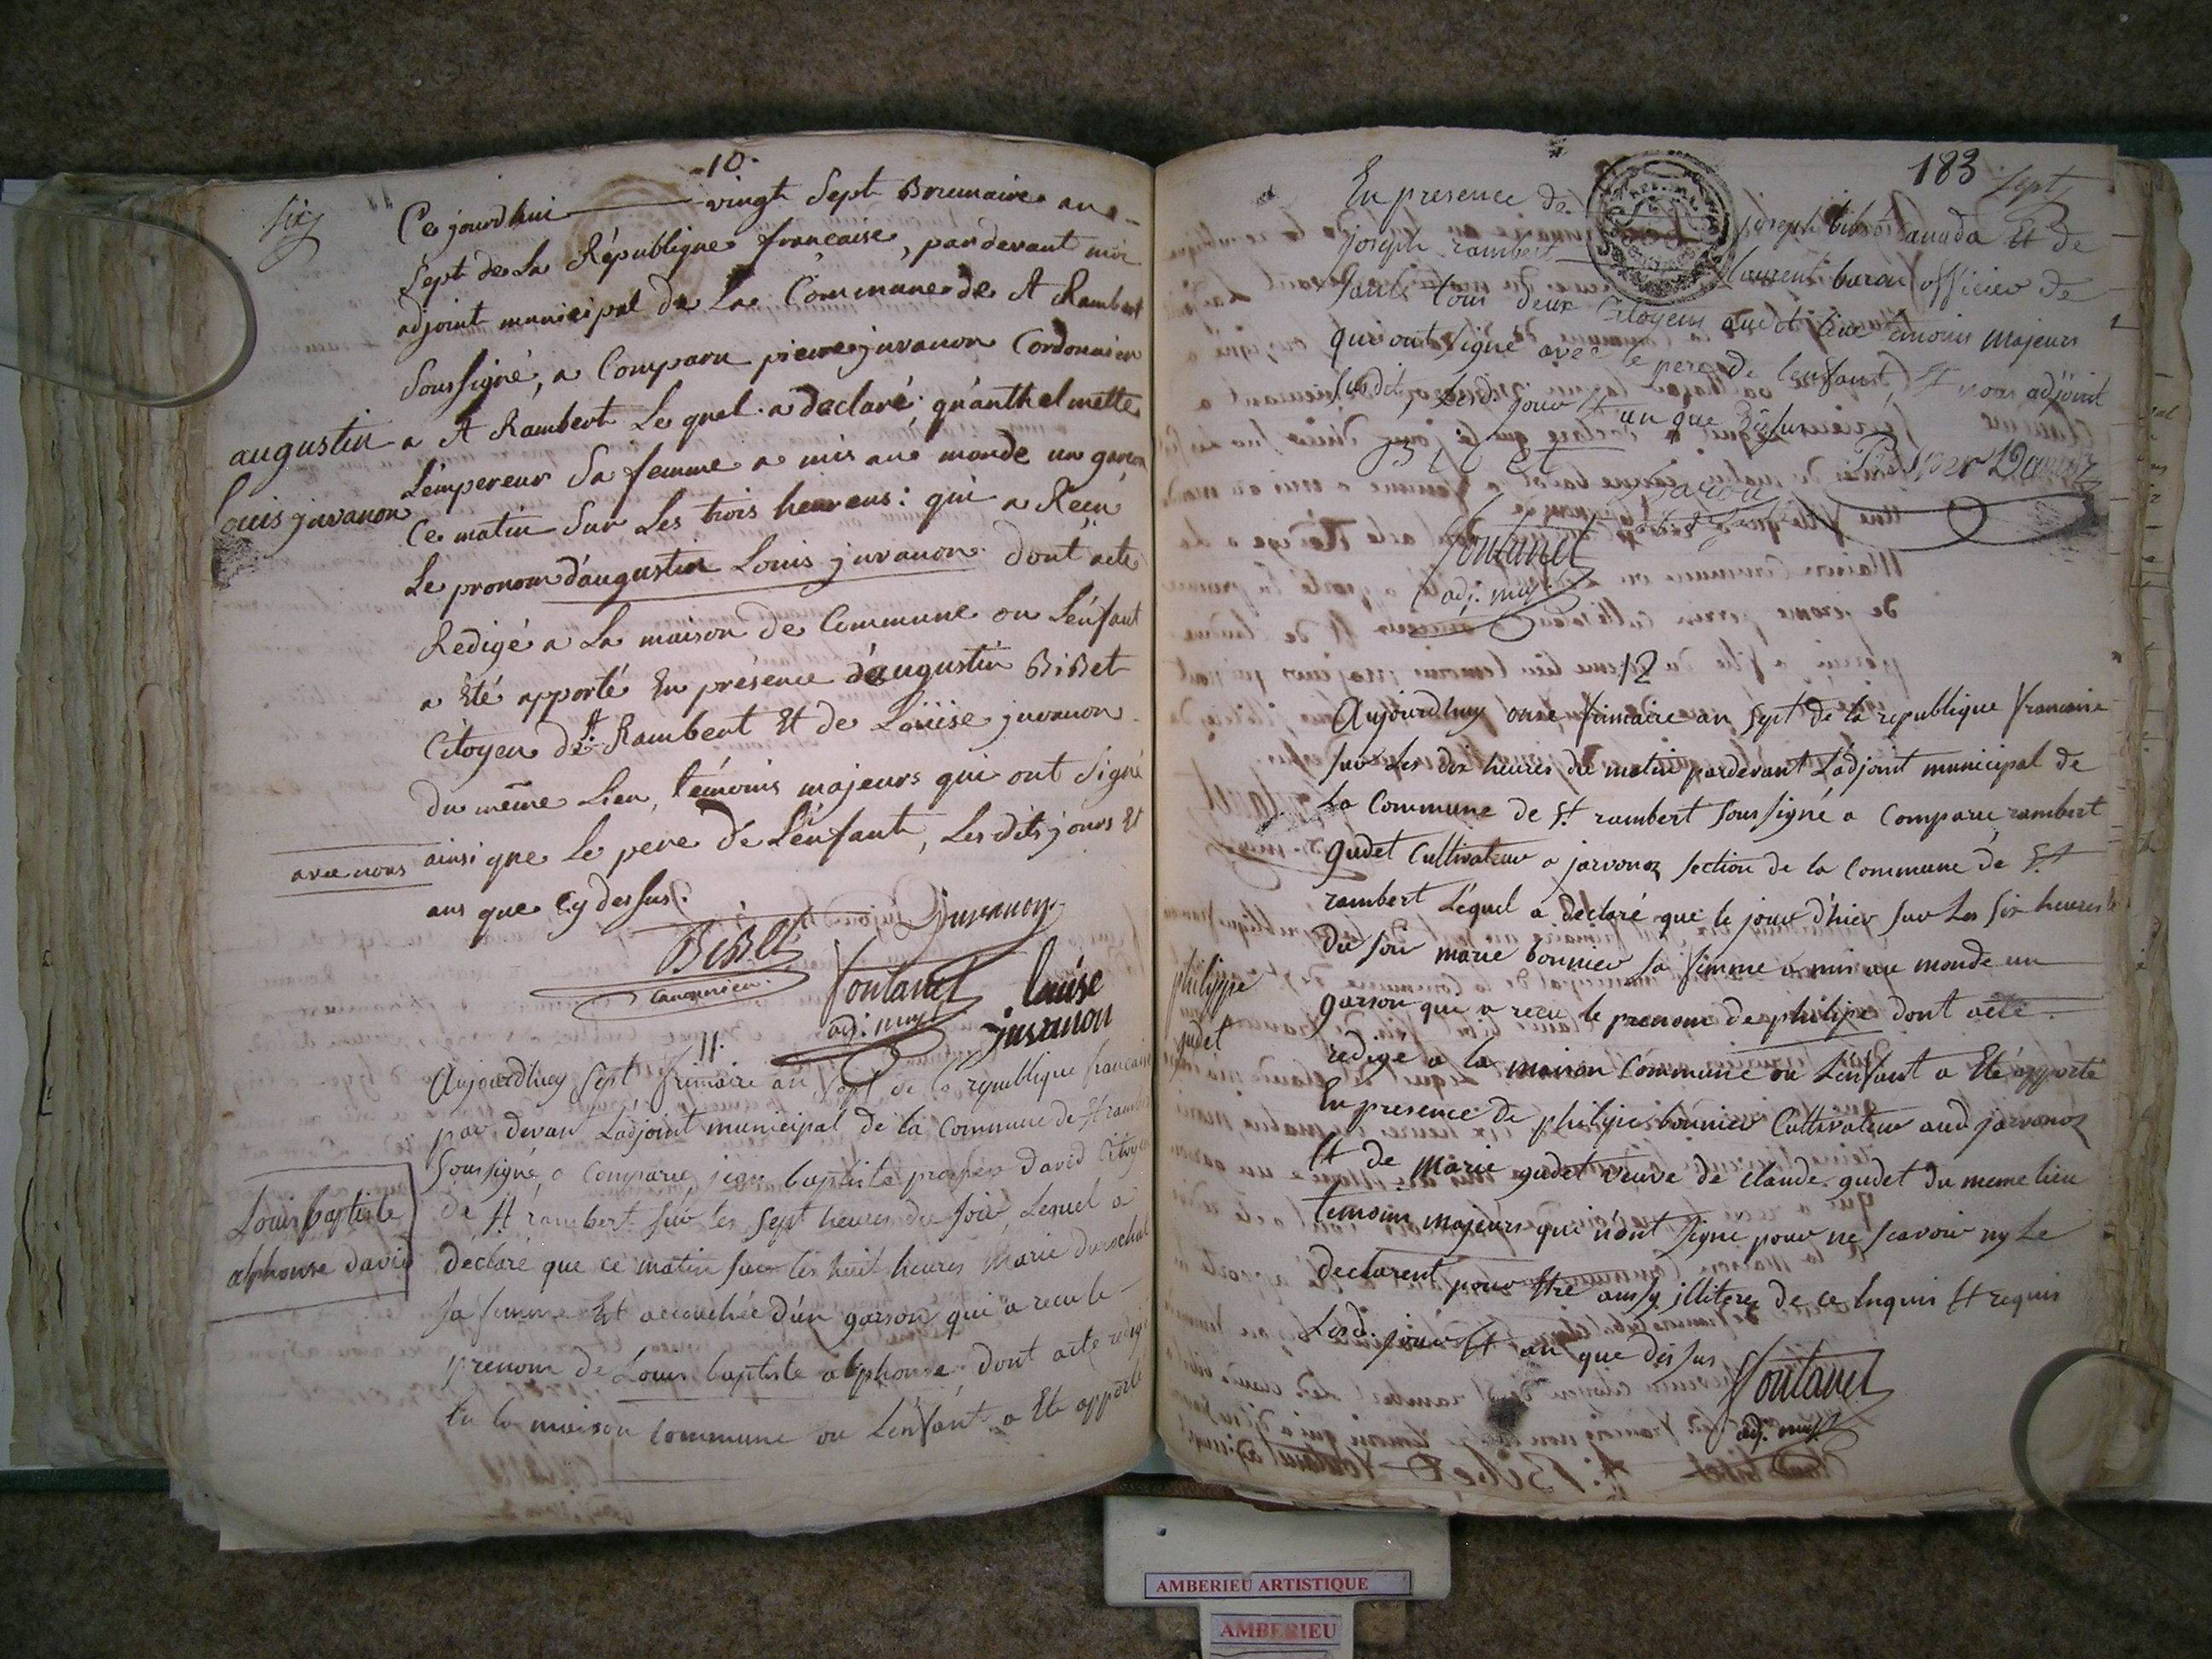 six
10.
Ce jourdhui vingt Sept Brumaire an
Sept de La République française, pardevant moi
adjoint municipal de La Commune de St Rambert
Soussigné, a Comparu pierre juvanon Cordonnier
a St Rambert Lequel a declaré qu'anthelmette
L'empereur Sa femme a mis au monde un garcon
Ce matin Sur Les trois heures : qui a Recu
Le pronom d'augustin Louis juvanon dont acte
Redigé a La maison de Commune ou L'énfant
a Eté apporté En présence d'augustin BiBet
Citoyen de St Rambert Et de Loüise juvanon
du même Lieu, témoins majeurs qui ont Signé
avec nous
ainsi que Le pere de L'énfant, Les dits jours Et
ans que Cy dessus.
augustin
Louis juvanon
Juvanon
BiBet
Fontanel
adj. mup.
Louise
juvanon
11.
Aujourdhuy Sept frimaire an Sept de la republique francaise
par devan L'adjoint municipal de la Commune de St rambert
Soussigné a Comparu jean baptiste prosper David Citoyen
de St rambert sur les Sept heures du soir Lequel a
déclaré que ce matin sur les huit heures Marie
sa femme Est accouchée d'un garson qui a recu le
prenom de Louis baptiste alphonse dont acte redigé
En la maison Commune ou L'enfant a Eté apporté
Louis baptiste
alphonse david
183
Sept
En presence de joseph bibet Et de
joseph rambert Laurent baron officier de
Santé tous deux Citoyens dud. lieu temoins majeurs
qui ont signé avec le pere de l'enfant, Et nous adjoint
susdit, Lesd. jour Et an que dessus
Bibet
Baron
Prosper David
Fontanel
adj. mup.
12
Aujourdhuy onse frimaire an Sept de la republique francaise
sur Les dix heures du matin pardevant L'adjoint municipal de
La Commune de St. rambert soussigné a Comparu rambert
gudet Cultivateur a javornoz section de la Commune de St
rambert Léquel a declaré que le jour d'hier sur Les six heures
du soir marie bonnier sa femme a mis au monde un
garson qui a recu le prenom de philipe dont acte
redigé a la maison Commune ou L'enfant a Eté apporté
En presence de philipe bonnier Cultivateur aud. javornoz
Et de Marie gudet veuve de Claude gudet du meme lieu
temoins majeurs qui n'ont signe pour ne scavoir ny Le
declarent pour Etre ausy illiteré de ce Enquis Et requis
Lesd. jour Et an que dessus
philippe
gudet
Fontanel
adj. mup.
AMBERIEU ARTISTIQUE
AMBERIEU